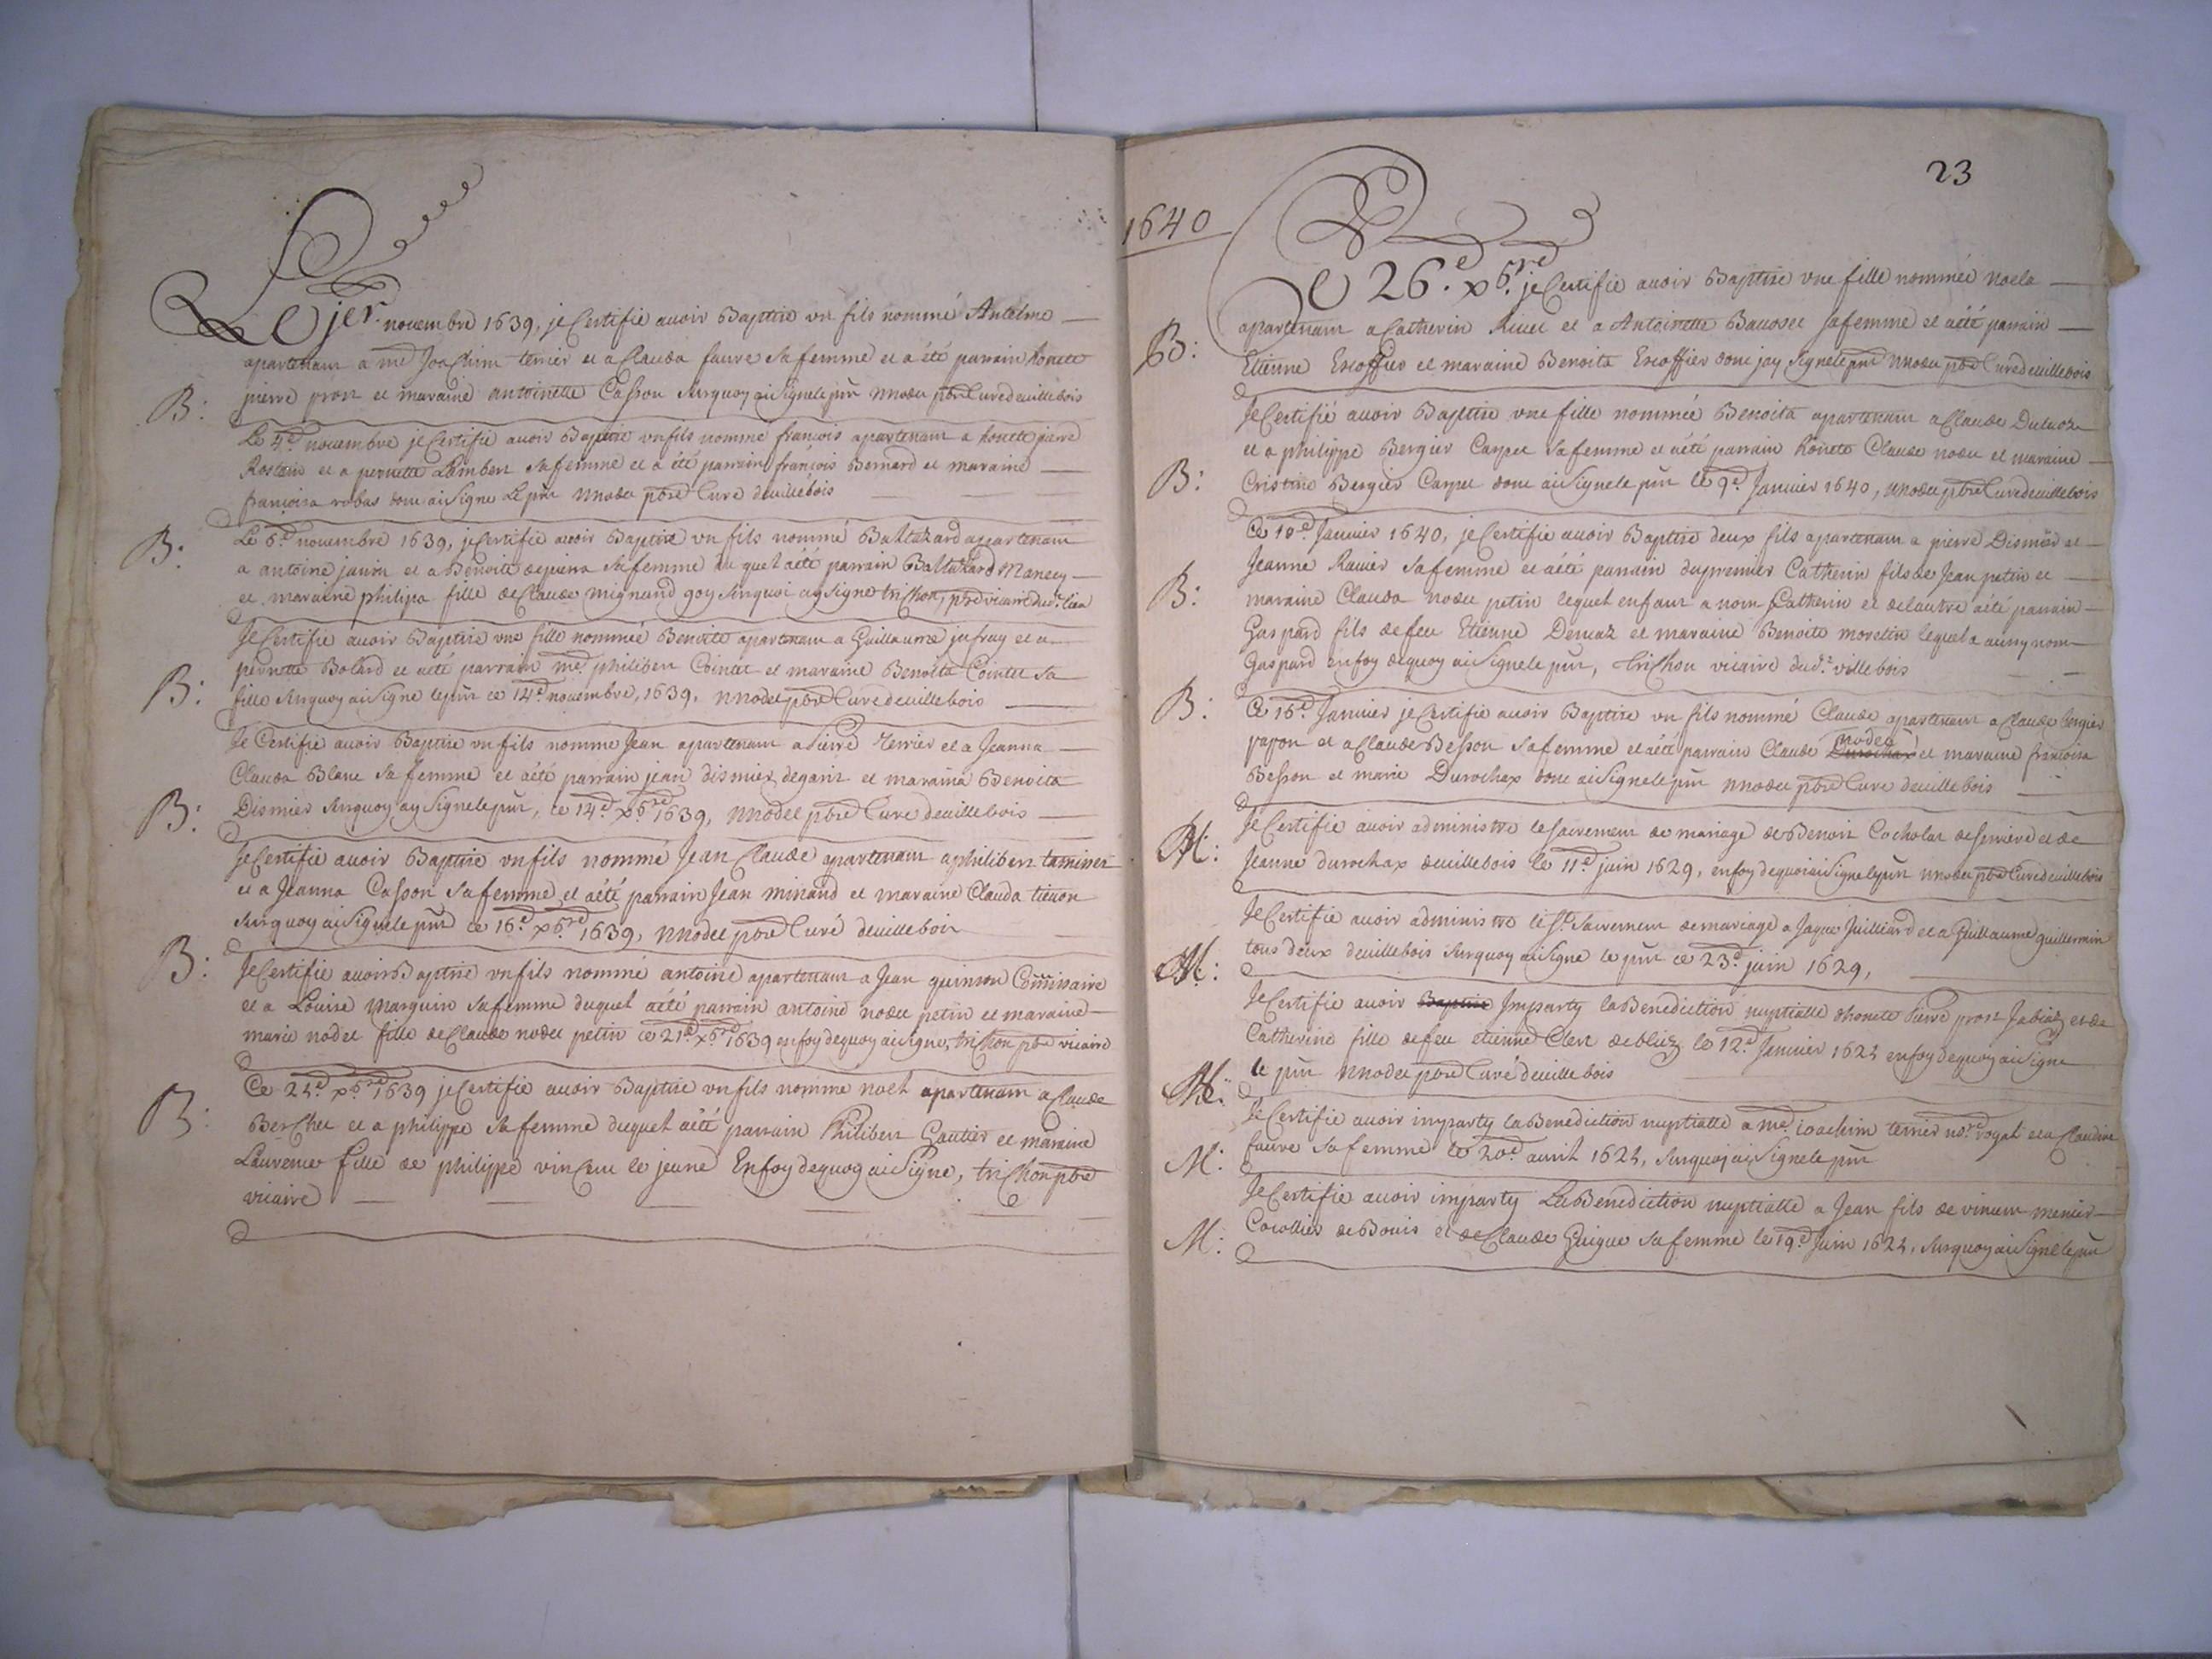 Le jer. nouembre 1639, je Certifie auoir Baptire vn fils nommé Antelme
apartenam a me Joachim terrier et a Clauda faure Sa femme et a été parrain honete
B: pierre pron et maraine antoinette Casson Surquoy ai Signe le pñt nnodet pbre Curé deuillebois
Le 4e nouembre je Certifie auoir Baptire vn fils nommé francois apartenam a honete pierre
Rostain et a pernette Lambert Sa femme et a été parrain francois Bernard et maraine
francoisa robas donc ai Signe Le pñt nnodet pbre Curé deuillebois
B: Le 6e nouembre 1639, je Certifie auoir Baptire vn fils nommé Baltazard appartenam
a antoine janin et a Benoite dequera Sa femme du quel a été parrain Baltazard Manecy
et maraine philipa fille de Claude mignand goy Surquoi ay Signe trichon, pbre vicaire dud. lieu
Je Certifie auoir Baptire vne fille nommée Benoite apartenam a Guillaume jufray et a
pernette Bolard et a été parrain me philibert Cointet et maraine Benoita Cointet Sa
B: fille Surquoy ai Signe le pñt ce 14e nouembre, 1639. nnodet pbre Curé deuillebois
Je Certifie auoir Baptire vn fils nomme Jean apartenam a Pierre terrier et a Jeanna
Clauda Blanc Sa femme et a été parrain jean dismier degarin et maraina Benoita
B: Dismier Surquoy ay Signe le pñt, ce 14e xbre 1639, nnodet pbre Curé deuillebois
Je Certifie auoir Baptire vn fils nommé Jean Claude apartenam a philibert taminet
et a Jeanna Casson Sa femme et a été parrain Jean minand et maraine Clauda tieuon
Surquoy ai Signe le pñt ce 16e xbre 1639, nnodet pbre Curé deuillebois
B: Je Certifie auoir Baptire vn fils nommé antoine apartenam a Jean quinson Commissaire
et a Louise Marquin Sa femme duquel a été parrain antoine nodet petin et maraine
marie nodet fille de Claude nodet petin ce 21e xbre 1639 en foy de quoy ai Signe, trichon pbre vicaire
B: Ce 24e xbre 1639 je Certifie auoir Baptire vn fils nomme noel apartenam a Claude
Berchet et a philippe Sa femme duquel a été parrain Philibert Gautier et maraine
Laurence fille de philippe vincent le jeune En foy de quoy ai Signe, trichon pbre
vicaire
23
1640
Le 26e xbre je Certifie auoir Baptire vne fille nommée noela
apartenam a Catherin Riuet et a Antoinette Bauosee Sa femme et a été parrain
B: Etienne Escoffier et maraine Benoita Escoffier donc jay Signe le pñt nnodet pbre Curé deuillebois
Je Certifié auoir Baptire vne fille nommée Benoita apartenam a Claude Dulaoz
et a philippe Bergier Carpet Sa femme et a été parrain honete Claude nodet et maraine
B: Cristine Bergier Carpet donc ai Signe le pñt le 9e Januier 1640, nnodet pbre Curé deuillebois
Ce 10e Januier 1640, je Certifie auoir Baptire deux fils apartenam a pierre Dismier et
Jeanne Rauier Sa femme et a été parrain du premier Catherin fils de Jean petin et
B: maraine Clauda nodet petin lequel enfant a nom Catherin et de lautre a été parrain
Gaspard fils de feu Etienne Demaz et maraine Benoite morestin lequel a aussy nom
Gaspard en foy dequoy ai Signe le pñt, trichon vicaire dud. villebois
B: Ce 16e Januier je Certifie auoir Baptire vn fils nommé Claude apartenam a Claude Bergier
papon et a Claude Besson Sa femme et a été parrain Claude Durochax nodet et maraine francoisa
Besson et marie Durochax donc ai Signe le pñt nnodet pbre Curé deuillebois
M: Je Certifie auoir administré le Sacrement de mariage de Benoit Cocholat de Serriere et de
Jeanne durochax deuillebois le 11e juin 1629, en foy de quoi ai Signe le pñt nnodet pbre Curé deuillebois
Je Certifie auoir administré le St. Sacrement de mariage a Jaque Juilliard et a Guillaume guillermin
M: tous deux deuillebois Surquoy ai Signe le pñt ce 23e juin 1629,
Je Certifie auoir Baptire Imparty la Benediction nuptialle dhonete Pierre pron Jabiaz et de
Catherine fille de feu etienne Clerc de bliez le 12e Januier 1624 en foy de quoy ai Signe
M: le pñt nnodet pbre Curé deuillebois
Je Certifie auoir imparty la Benediction nuptialle a me ioachim terrier nore royal et a Claudine
M: faure Sa femme le 20e auril 1624, Surquoi ai Signe le pñt
Je Certifie auoir imparty La Benediction nuptialle a Jean fils de vincent menier
M: Corollier de Bouis et de Claude Guigue Sa femme le 19e Juin 1624, Surquoy ai Signe le pñt